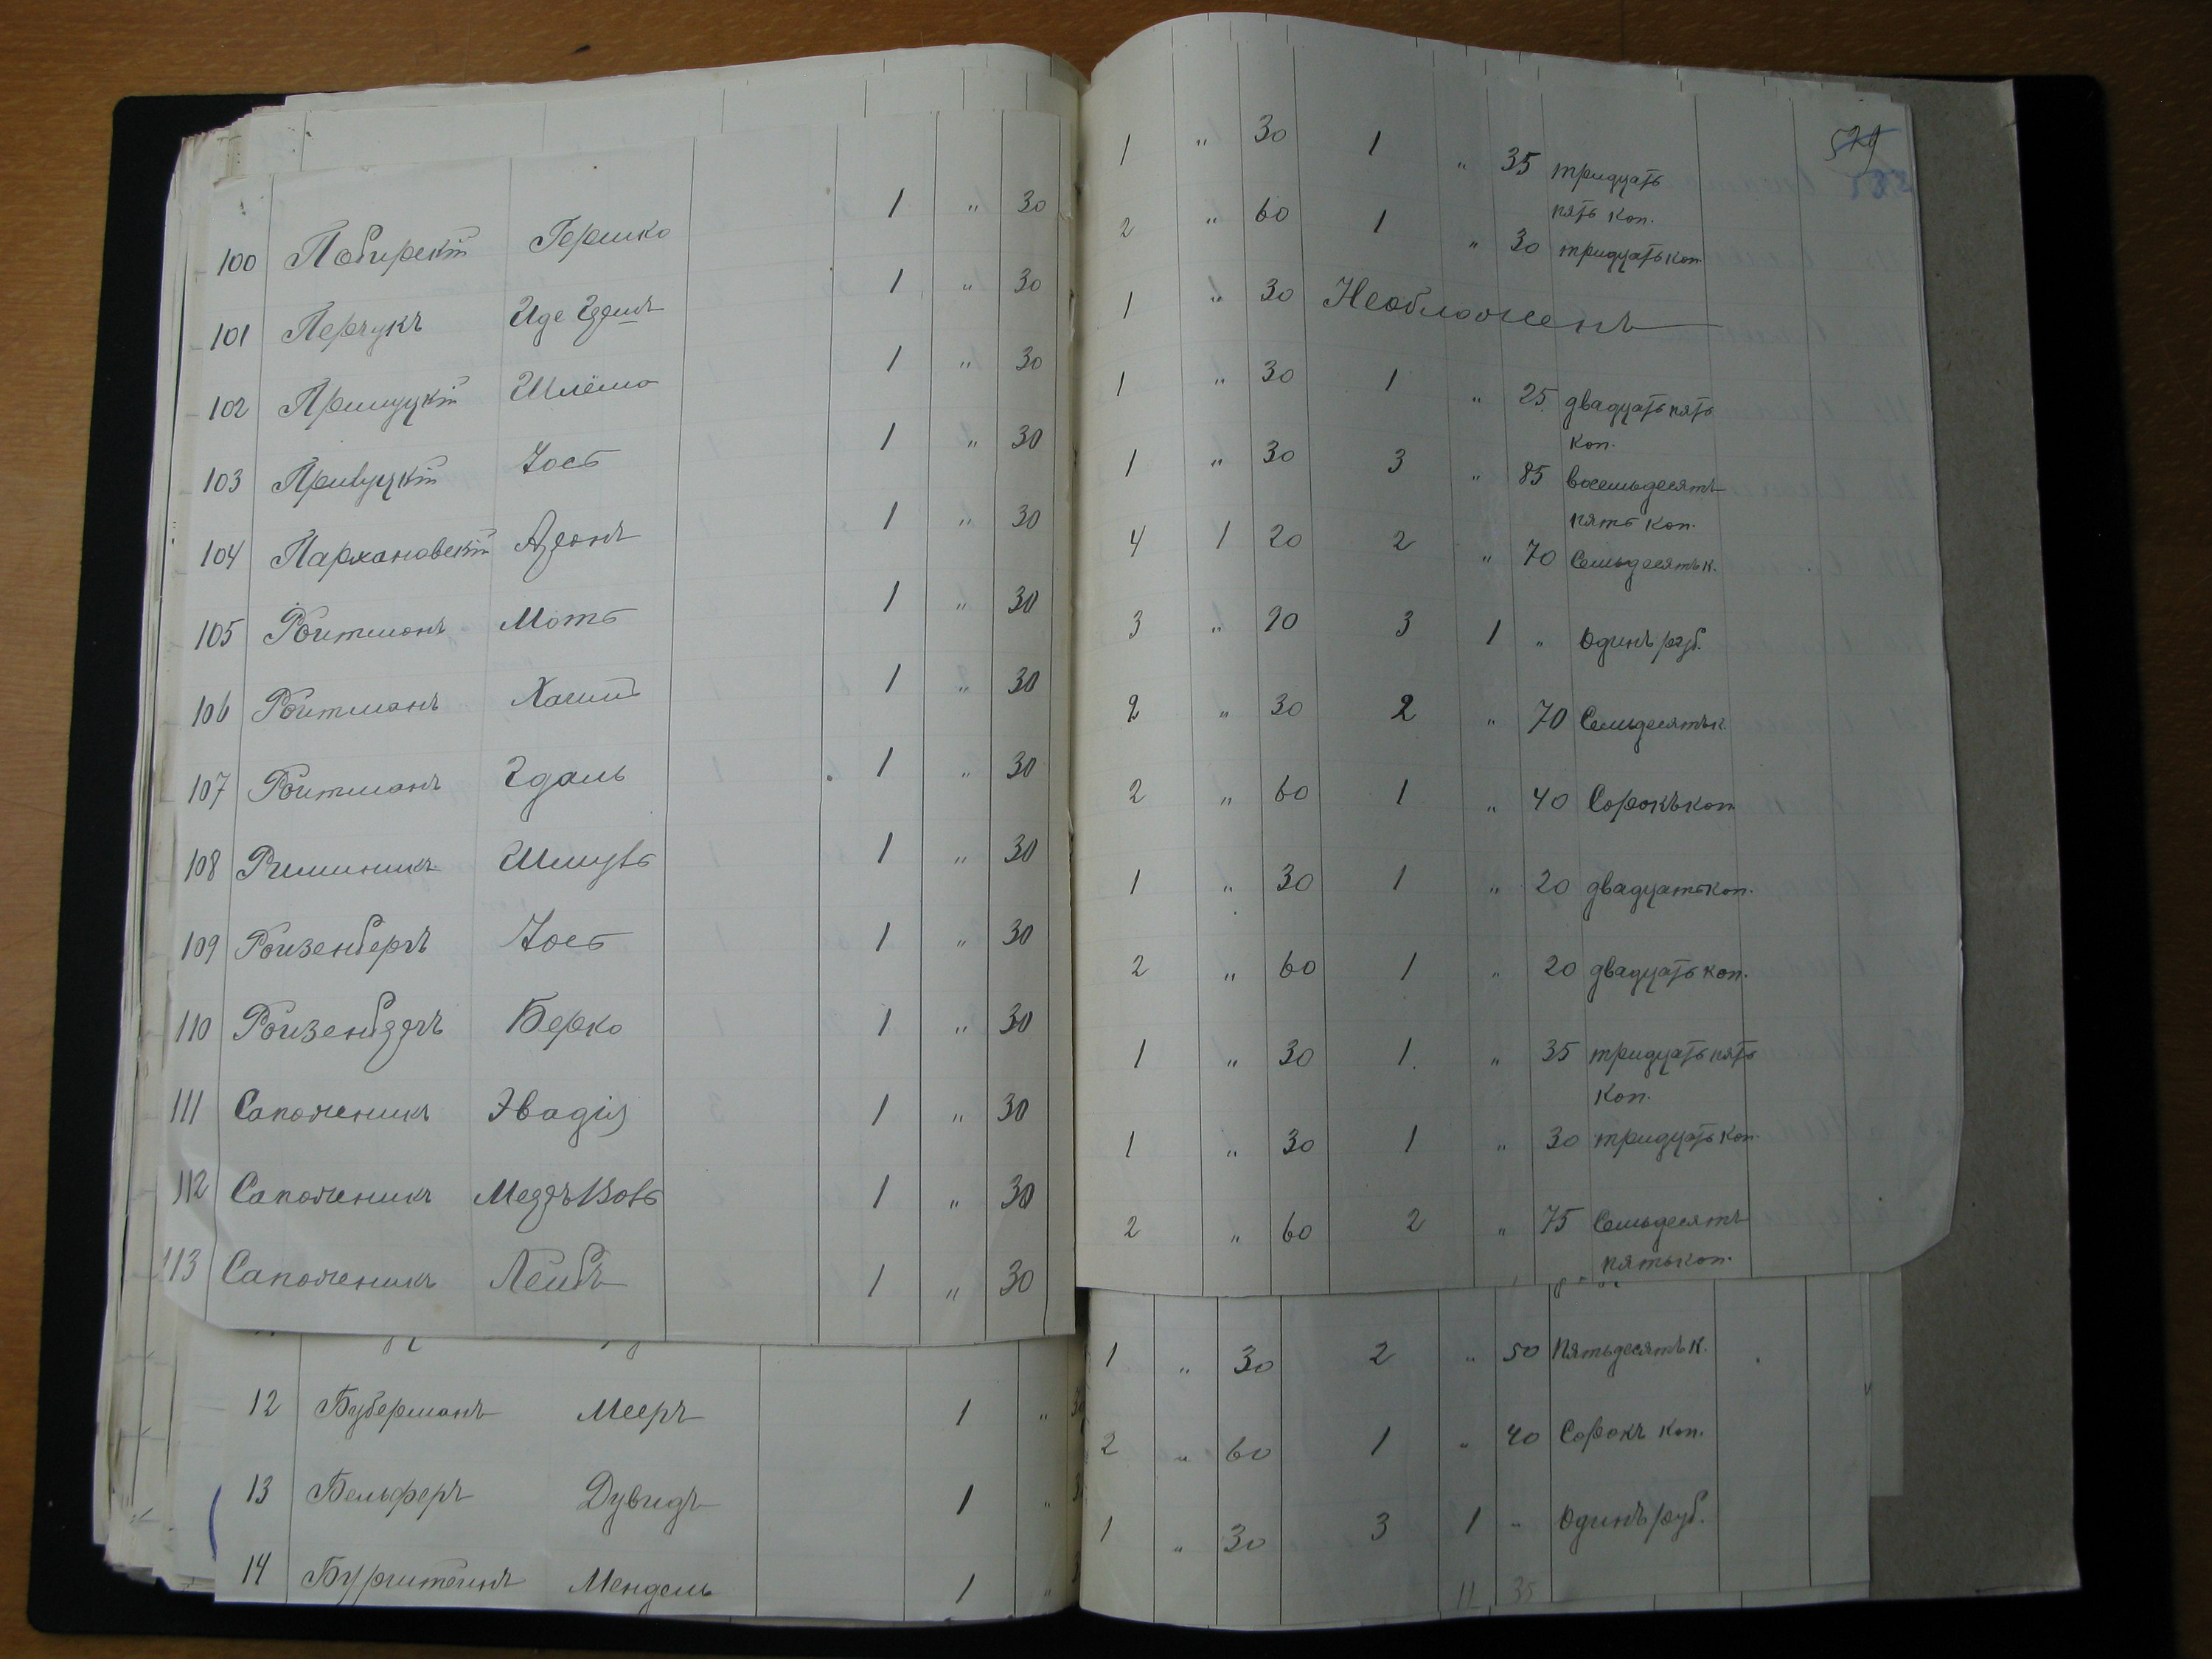 1 " 30 1 " 35 тридцать 529
пять коп.
100 Побирскій Гершко 1 " 30 2 " 60 1 " 30 тридцать коп.
101 Перчукъ Иде 1 " 30 1 " 30 Необложенъ
102 Прилуцкій Шлёма 1 " 30 1 " 30 1 " 25 двадцать пять
коп.
103 Прилуцкій Іось 1 " 30 1 " 30 3 " 85 восемьдесятъ
пять коп.
104 Пархановскій 1 " 30 4 1 20 2 " 70 Семьдесятъ к.
105 Ройтманъ Моть 1 " 30 3 " 90 3 1 " Одинъ руб.
106 Ройтманъ Хаимъ 1 " 30 2 " 30 2 " 70 Семьдесятъ к.
107 Ройтманъ Гдаль 1 " 30 2 " 60 1 " 40 Сорокъ коп.
108 Шмуль 1 " 30 1 " 30 1 " 20 двадцать коп.
109 Ройзенбергъ Іось 1 " 30 2 " 60 1 " 20 двадцать коп.
110 Берко 1 " 30 1 " 30 1 " 35 тридцать пять
коп.
111 Сапожникъ Эвадія 1 " 30 1 " 30 1 " 30 тридцать коп.
112 Сапожникъ 1 " 30 2 " 60 2 " 75 Семьдесятъ
пять коп.
113 Сапожникъ Лейбъ 1 " 30
1 " 30 2 " 50 Пятьдесятъ к.
12 Буберманъ Мееръ 1 " 2 " 60 1 " 40 Сорокъ коп.
13 Бельферъ Дувидъ 1 " 1 " 30 3 1 " Одинъ руб.
14 Бургштейнъ Мендель 1 " 11 35